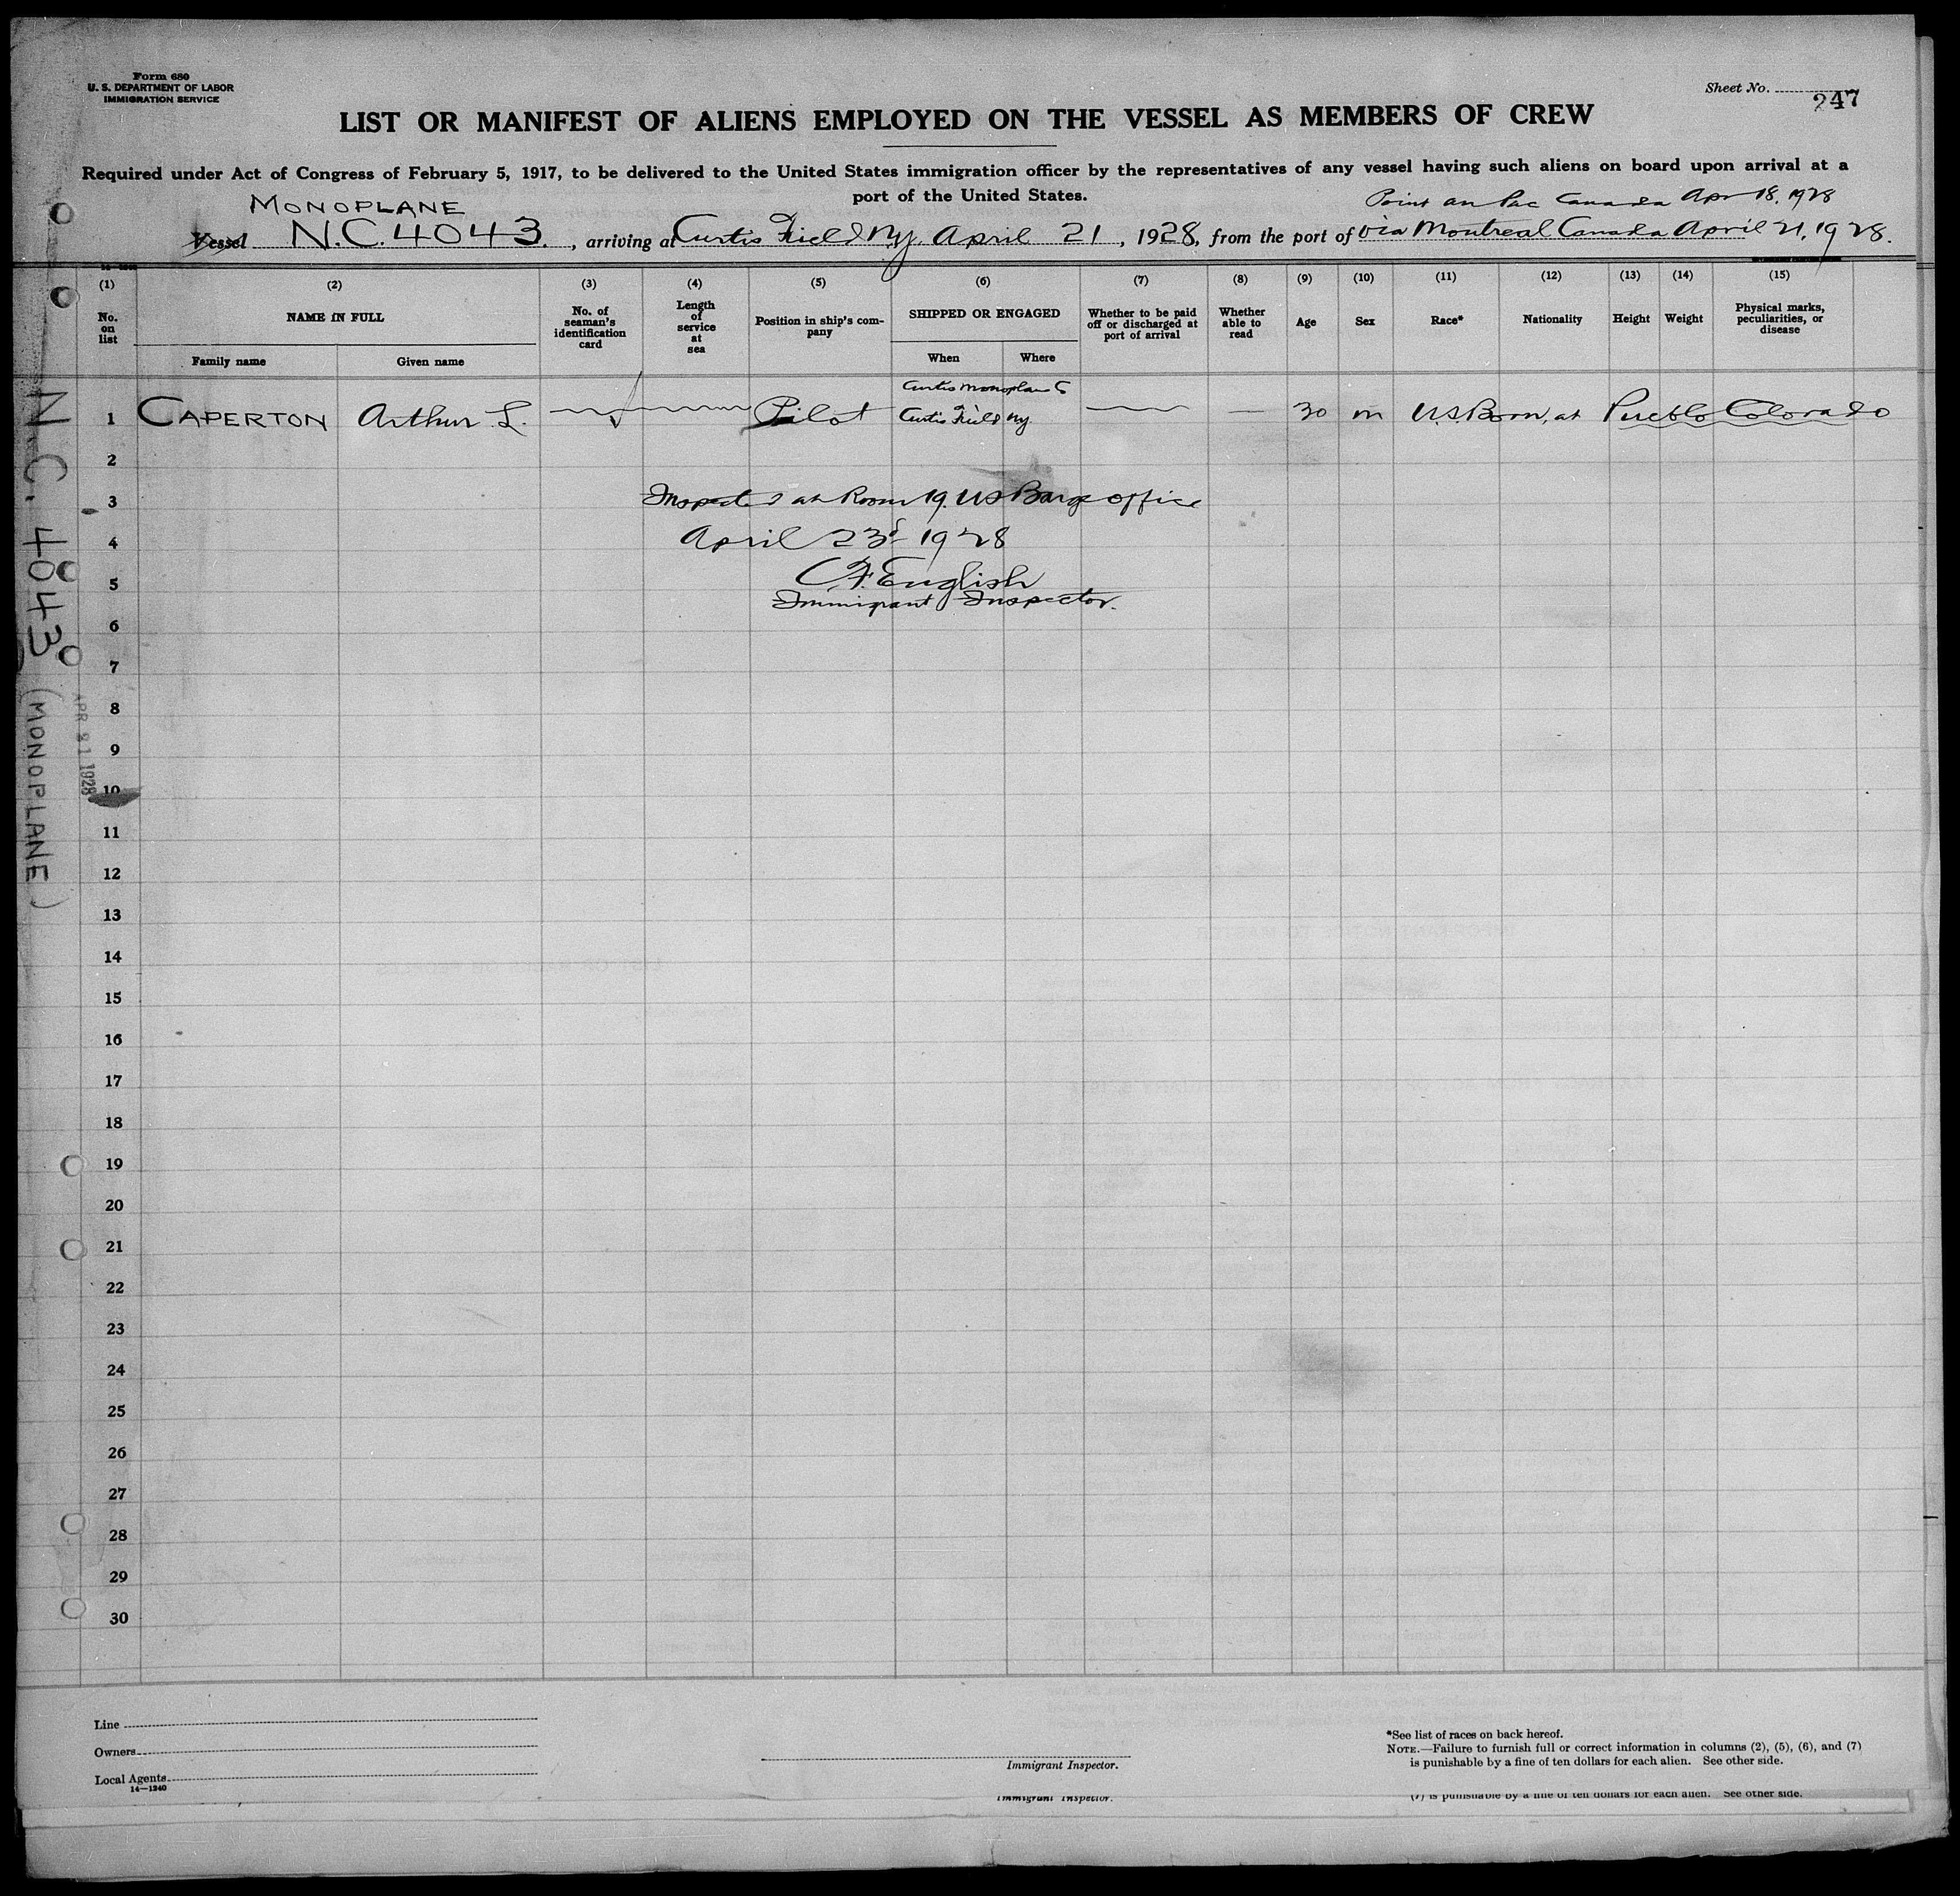 Form 680
U. S. DEPARTMENT OF LABOR
IMMIGRATION SERVICE
Sheet No.
247
LIST OR MANIFEST OF ALIENS EMPLOYED ON THE VESSEL AS MEMBERS OF CREW
Required under Act of Congress of February 5, 1917, to be delivered to the United States immigration officer by the representatives of any vessel having such aliens on board upon arrival at a
port of the United States.
MONOPLANE
Point au Pac Canada Apr 18, 1928
Vessel N.C. 4043, arriving at Curtis Field N.Y. April 21, 1928, from the port of via Montreal Canada April 21, 1928.
(1) (2) (3) (4) (5) (6) (7) (8) (9) (10) (11) (12) (13) (14) (15)
No. on list
NAME IN FULL
Family name
Given name
No. of seaman's identification card
Length of service at sea
Position in ship's company
SHIPPED OR ENGAGED
When
Where
Whether to be paid off or discharged at port of arrival
Whether able to read
Age
Sex
Race*
Nationality
Height
Weight
Physical marks, peculiarities, or disease
Curtis Monoplane
1 CAPERTON Arthur L. Pilot Curtis Field N.Y. — — 30 m U.S. Born, at Pueblo Colorado
2
3 Inspected at Room 19. US Barge office
4 April 23d 1928
5 C.F. English
Immigrant Inspector.
6
7
8
9
10
11
12
13
14
15
16
17
18
19
20
21
22
23
24
25
26
27
28
29
30
N.C. 4043 (MONOPLANE)
APR 21 1928
Line
Owners
Local Agents
14—1240
Immigrant Inspector.
*See list of races on back hereof.
NOTE.—Failure to furnish full or correct information in columns (2), (5), (6), and (7)
is punishable by a fine of ten dollars for each alien. See other side.
Immigrant Inspector.
(7) is punishable by a fine of ten dollars for each alien. See other side.